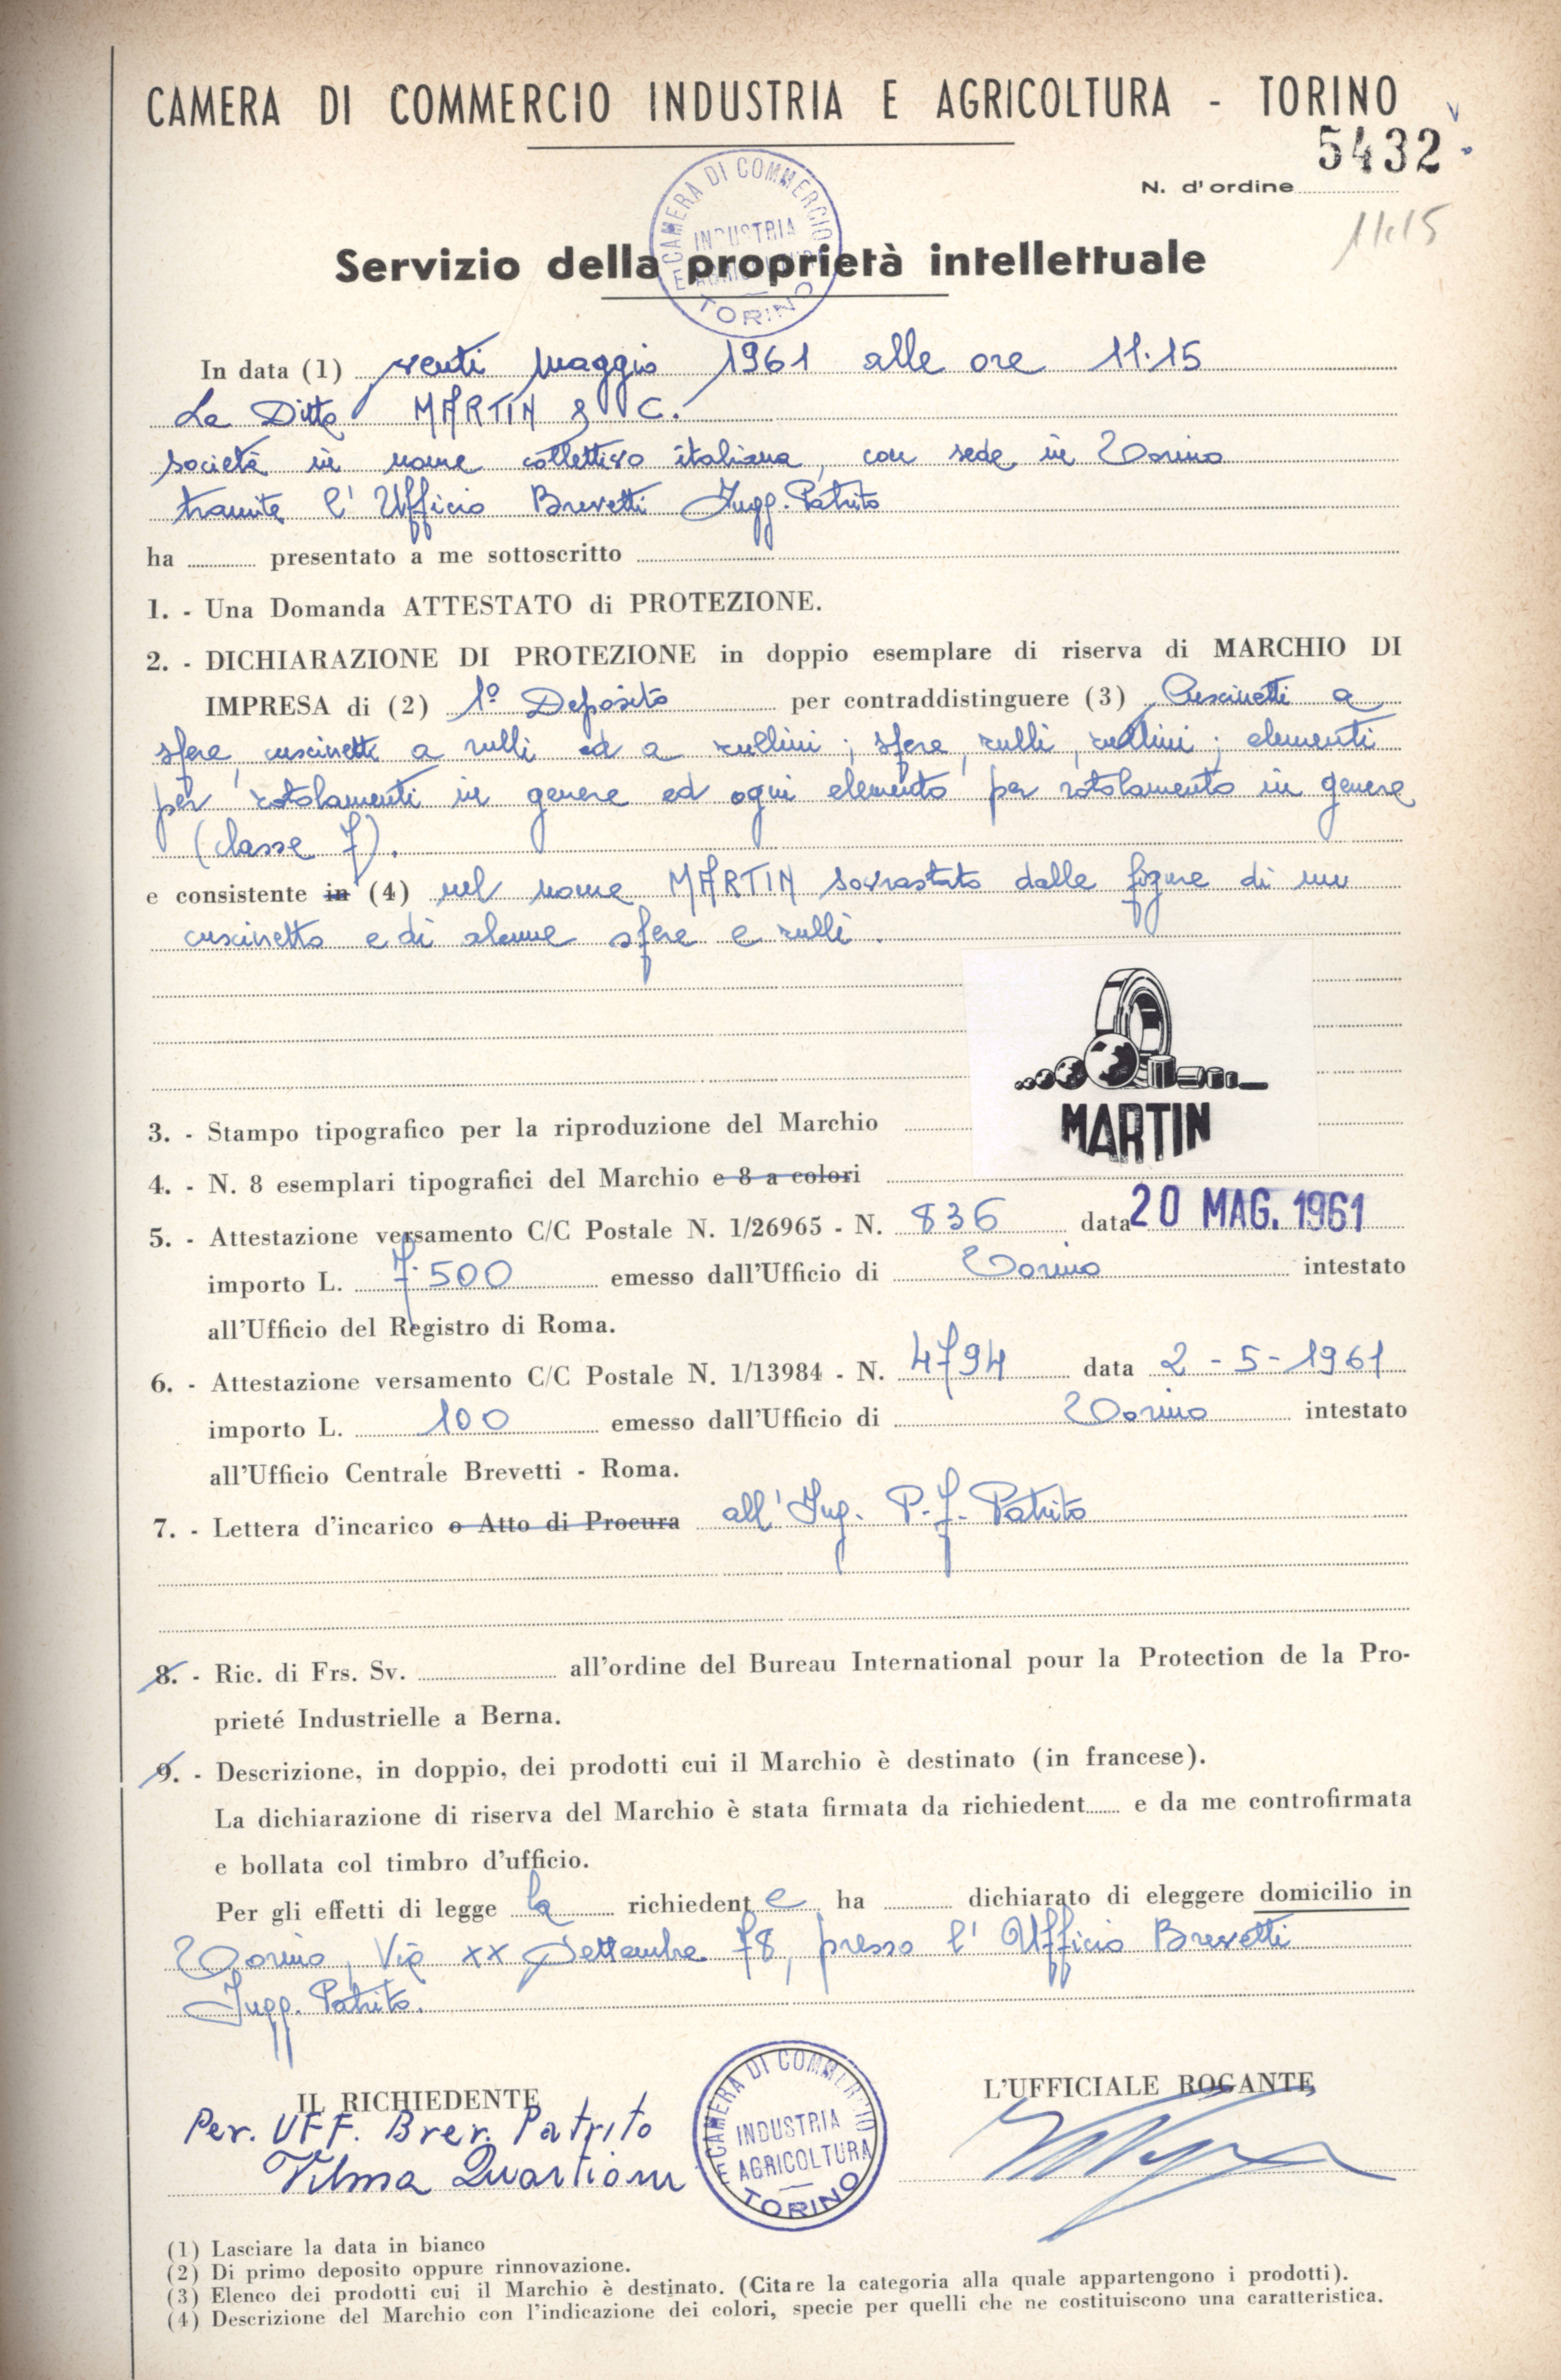 CAMERA DI COMMERCIO INDUSTRIA E AGRICOLTURA - TORINO
5432
N. d'ordine
11.15
E CAMERA DI COMMERCIO INDUSTRIA AGRICOLTURA TORINO
Servizio della proprietà intellettuale
In data (1) venti Maggio 1961 alle ore 11.15
La Ditta MARTIN & C.
società in nome collettivo italiana, con sede in Torino
tramite l'Ufficio Brevetti Ingg. Patrito
ha presentato a me sottoscritto
1. - Una Domanda ATTESTATO di PROTEZIONE.
2. - DICHIARAZIONE DI PROTEZIONE in doppio esemplare di riserva di MARCHIO DI
IMPRESA di (2) 1º Deposito per contraddistinguere (3) Cuscinetti a
sfere, cuscinetti a rulli ed a rullini; sfere, rulli, rullini; elementi
per rotolamenti in genere ed ogni elemento per rotolamento in genere
(classe 7).
e consistente in (4) nel nome MARTIN sovrastato dalle figure di un
cuscinetto e di alcune sfere e rulli.
MARTIN
3. - Stampo tipografico per la riproduzione del Marchio
4. - N. 8 esemplari tipografici del Marchio e 8 a colori
5. - Attestazione versamento C/C Postale N. 1/26965 - N. 836 data 20 MAG. 1961
importo L. 7.500 emesso dall'Ufficio di Torino intestato
all'Ufficio del Registro di Roma.
6. - Attestazione versamento C/C Postale N. 1/13984 - N. 4794 data 2-5-1961
importo L. 100 emesso dall'Ufficio di Torino intestato
all'Ufficio Centrale Brevetti - Roma.
7. - Lettera d'incarico o Atto di Procura all'Ing. P. F. Patrito
8. - Ric. di Frs. Sv. all'ordine del Bureau International pour la Protection de la Pro-
prieté Industrielle a Berna.
9. - Descrizione, in doppio, dei prodotti cui il Marchio è destinato (in francese).
La dichiarazione di riserva del Marchio è stata firmata da richiedent e da me controfirmata
e bollata col timbro d'ufficio.
Per gli effetti di legge la richiedente ha dichiarato di eleggere domicilio in
Torino, Via XX Settembre 78, presso l'Ufficio Brevetti
Ingg. Patrito.
IL RICHIEDENTE
L'UFFICIALE ROGANTE
Per. UFF. Brev. Patrito
Vilma
E CAMERA DI COMMERCIO INDUSTRIA AGRICOLTURA TORINO
(1) Lasciare la data in bianco
(2) Di primo deposito oppure rinnovazione.
(3) Elenco dei prodotti cui il Marchio è destinato. (Citare la categoria alla quale appartengono i prodotti).
(4) Descrizione del Marchio con l'indicazione dei colori, specie per quelli che ne costituiscono una caratteristica.